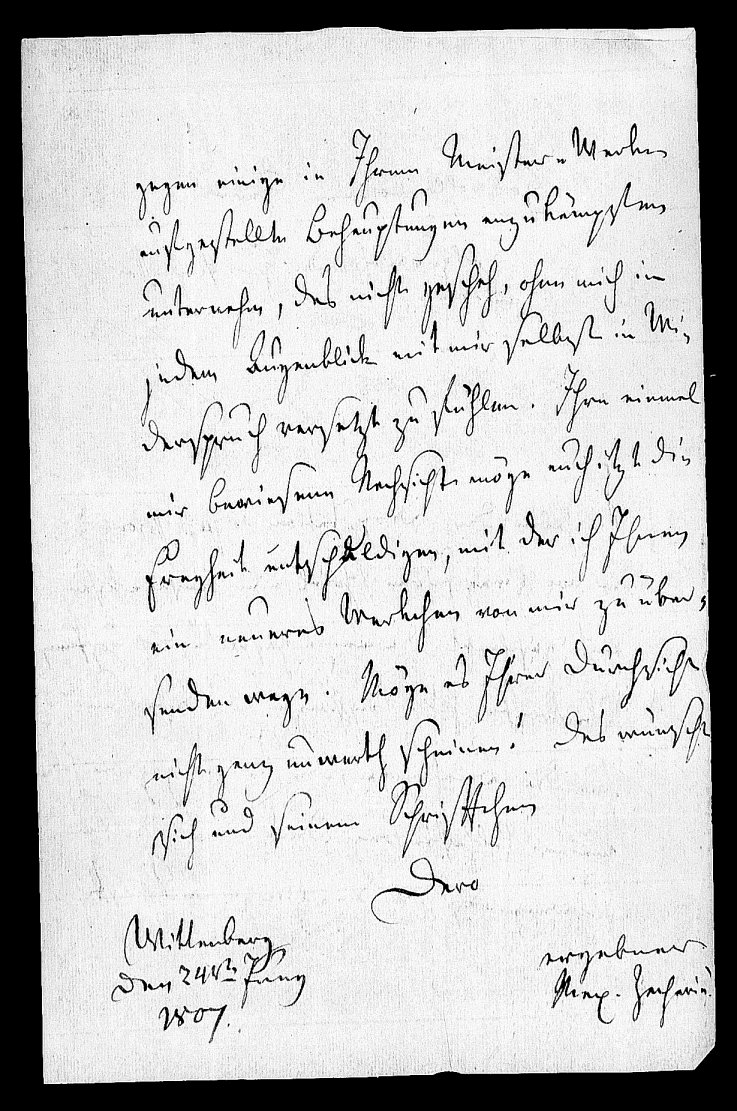 gegen einige in Ihren Meister-Werken
aufgestellte Behauptungen anzukämpfen
unternehm, das nicht geschah, ohne mich in
jedem Augenblick mit mir selbst in Wi-
derspruch versetzt zu fühlen. Ihre einmal
mir bewiesene Nachsicht möge auch itzt die
Freyheit entschuldigen, mit der ich Ihnen
ein neueres Werkchen von mir zu über-
senden wage. Möge es Ihrer Durchsicht
nicht ganz unwerth scheinen! Das wünscht
sich und seinem Schriftchen
Dero
Wittenberg
den 24st. Juny
1807.
ergebner
Zachariä.